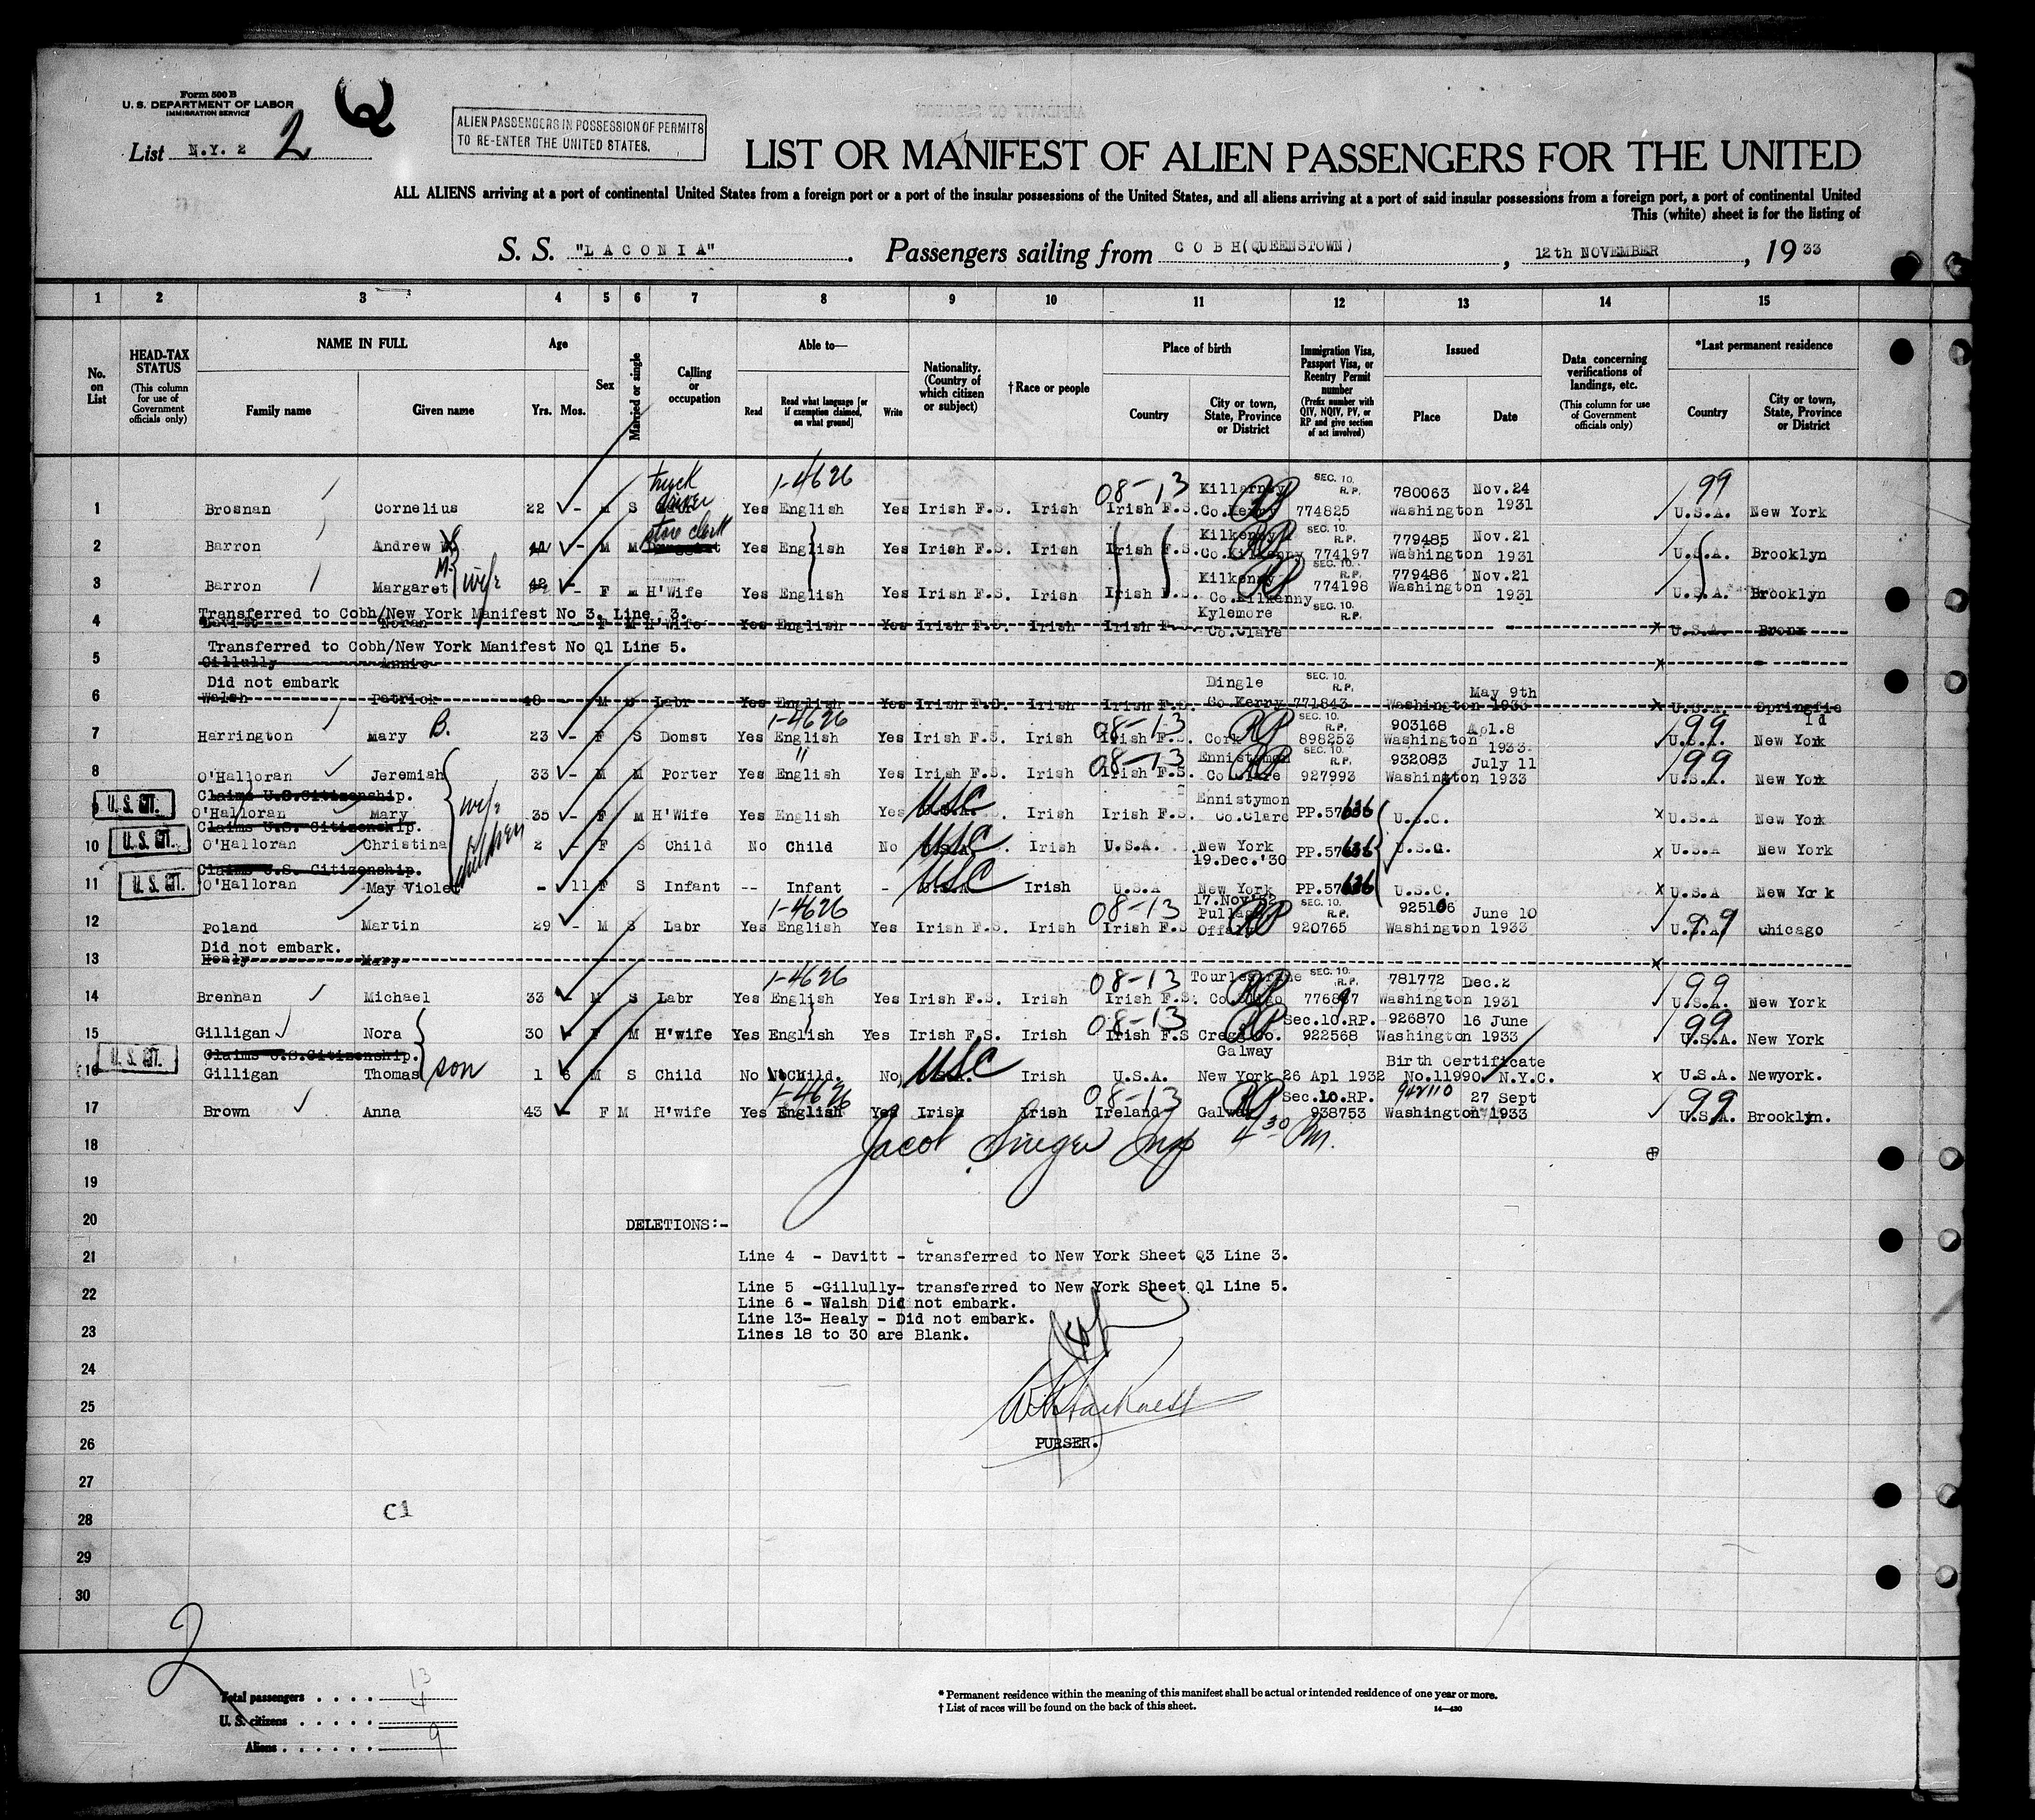 Form 500 B
U. S. DEPARTMENT OF LABOR
IMMIGRATION SERVICE
List N.Y. 2 2
ALIEN PASSENGERS IN POSSESSION OF PERMITS
TO RE-ENTER THE UNITED STATES.
LIST OR MANIFEST OF ALIEN PASSENGERS FOR THE UNITED
ALL ALIENS arriving at a port of continental United States from a foreign port or a port of the insular possessions of the United States, and all aliens arriving at a port of said insular possessions from a foreign port, a port of continental United
This (white) sheet is for the listing of
S. S. "LACONIA". Passengers sailing from COBH(QUEENSTOWN), 12th NOVEMBER, 19 33
1 2 3 4 5 6 7 8 9 10 11 12 13 14 15
No. on List
HEAD-TAX STATUS (This column for use of Government officials only)
NAME IN FULL
Family name Given name
Age
Yrs. Mos.
Sex
Married or single
Calling or occupation
Able to—
Read Read what language [or if exemption claimed, on what ground] Write
Nationality. (Country of which citizen or subject)
† Race or people
Place of birth
Country City or town, State, Province or District
Immigration Visa, Passport Visa, or Reentry Permit number (Prefix number with QIV, NQIV, PV, or RP and give section of act involved)
Issued
Place Date
Data concerning verifications of landings, etc. (This column for use of Government officials only)
*Last permanent residence
Country City or town, State, Province or District
truck 1-4626 08-13 Killarney SEC. 10. R.P. 780063 Nov.24 99
1 Brosnan Cornelius 22 - M S driver Yes English Yes Irish F.S. Irish Irish F.S. Co.Kerry 774825 Washington 1931 U.S.A. New York
store clerk Kilkenny SEC. 10. R.P. 779485 Nov.21
2 Barron Andrew 44 - M M Yes English Yes Irish F.S. Irish Irish F.S. Co.Kilkenny 774197 Washington 1931 U.S.A. Brooklyn
M. wife Kilkenny SEC. 10. R.P. 779486 Nov.21
3 Barron Margaret 42 - F M H'Wife Yes English Yes Irish F.S. Irish Irish F.S. Co.Kilkenny 774198 Washington 1931 U.S.A. Brooklyn
Transferred to Cobh/New York Manifest No 3, Line 3. Kylemore SEC. 10. R.P.
4 F M H'Wife Yes English Yes Irish F.S. Irish Irish F.S. Co.Clare x U.S.A. Bronx
Transferred to Cobh/New York Manifest No Q1 Line 5.
5 Gillully Annie x
Did not embark Dingle SEC. 10. R.P. May 9th
6 Walsh Patrick 40 - M S Labr Yes English Yes Irish F.S. Irish Irish F.S. Co.Kerry 771843 Washington 1933 x U.S.A. Springfield
B. 1-4626 08-13 SEC. 10. R.P. 903168 Apl.8 99
7 Harrington Mary 23 - F S Domst Yes English Yes Irish F.S. Irish Irish F.S. Cork 898253 Washington 1933 U.S.A. New York
" 08-13 Ennistymon SEC. 10. R.P. 932083 July 11 99
8 O'Halloran Jeremiah 33 - M M Porter Yes English Yes Irish F.S. Irish Irish F.S. Co.Clare 927993 Washington 1933 U.S.A. New York
Claims U.S.Citizenship. wife Ennistymon
9 U.S. CIT. O'Halloran Mary 35 - F M H'Wife Yes English Yes USC Irish Irish F.S. Co.Clare PP.57636 U.S.C. x U.S.A New York
Claims U.S. Citizenship. children
10 U.S. CIT. O'Halloran Christina 2 - F S Child No Child No USC Irish U.S.A. New York 19.Dec.'30 PP.57636 U.S.C. x U.S.A New York
Claims U.S. Citizenship.
11 U.S. CIT. O'Halloran May Violet - 11 F S Infant -- Infant - USC Irish U.S.A New York 17.Nov'32 PP.57636 U.S.C. x U.S.A New York
1-4626 08-13 SEC. 10. R.P. 925106 June 10
12 Poland Martin 29 - M S Labr Yes English Yes Irish F.S. Irish Irish F.S Offaly 920765 Washington 1933 U.S.A 99 Chicago
Did not embark.
13 Healy Mary x
1-4626 08-13 SEC. 10. R.P. 781772 Dec.2 99
14 Brennan Michael 33 - M S Labr Yes English Yes Irish F.S. Irish Irish F.S. Co.Sligo 776897 Washington 1931 U.S.A. New York
08-13 Sec.10.RP. 926870 16 June 99
15 Gilligan Nora 30 F M H'wife Yes English Yes Irish F.S. Irish Irish F.S Cregg Co. Galway 922568 Washington 1933 U.S.A. New York
Claims U.S.Citizenship. Birth Certificate
16 U.S. CIT. Gilligan Thomas son 1 6 M S Child No Child. No USC Irish U.S.A. New York 26 Apl 1932 No.11990 N.Y.C. x U.S.A. Newyork.
1-4626 08-13 Sec.10.RP. 942110 27 Sept 99
17 Brown Anna 43 - F M H'wife Yes English Yes Irish Irish Ireland Galway 938753 Washington 1933 U.S.A. Brooklyn.
18 Jacob Singer Insp 4 30 Pm.
19
20 DELETIONS:-
21 Line 4 - Davitt - transferred to New York Sheet Q3 Line 3.
22 Line 5 -Gillully- transferred to New York Sheet Q1 Line 5.
Line 6 - Walsh Did not embark.
Line 13- Healy - Did not embark.
23 Lines 18 to 30 are Blank.
24
25
26 PURSER.
27
28 C1
29
30
2
Total passengers . . . . 13
U. S. citizens . . . . . 4
Aliens . . . . . . 9
* Permanent residence within the meaning of this manifest shall be actual or intended residence of one year or more.
† List of races will be found on the back of this sheet. 14—430